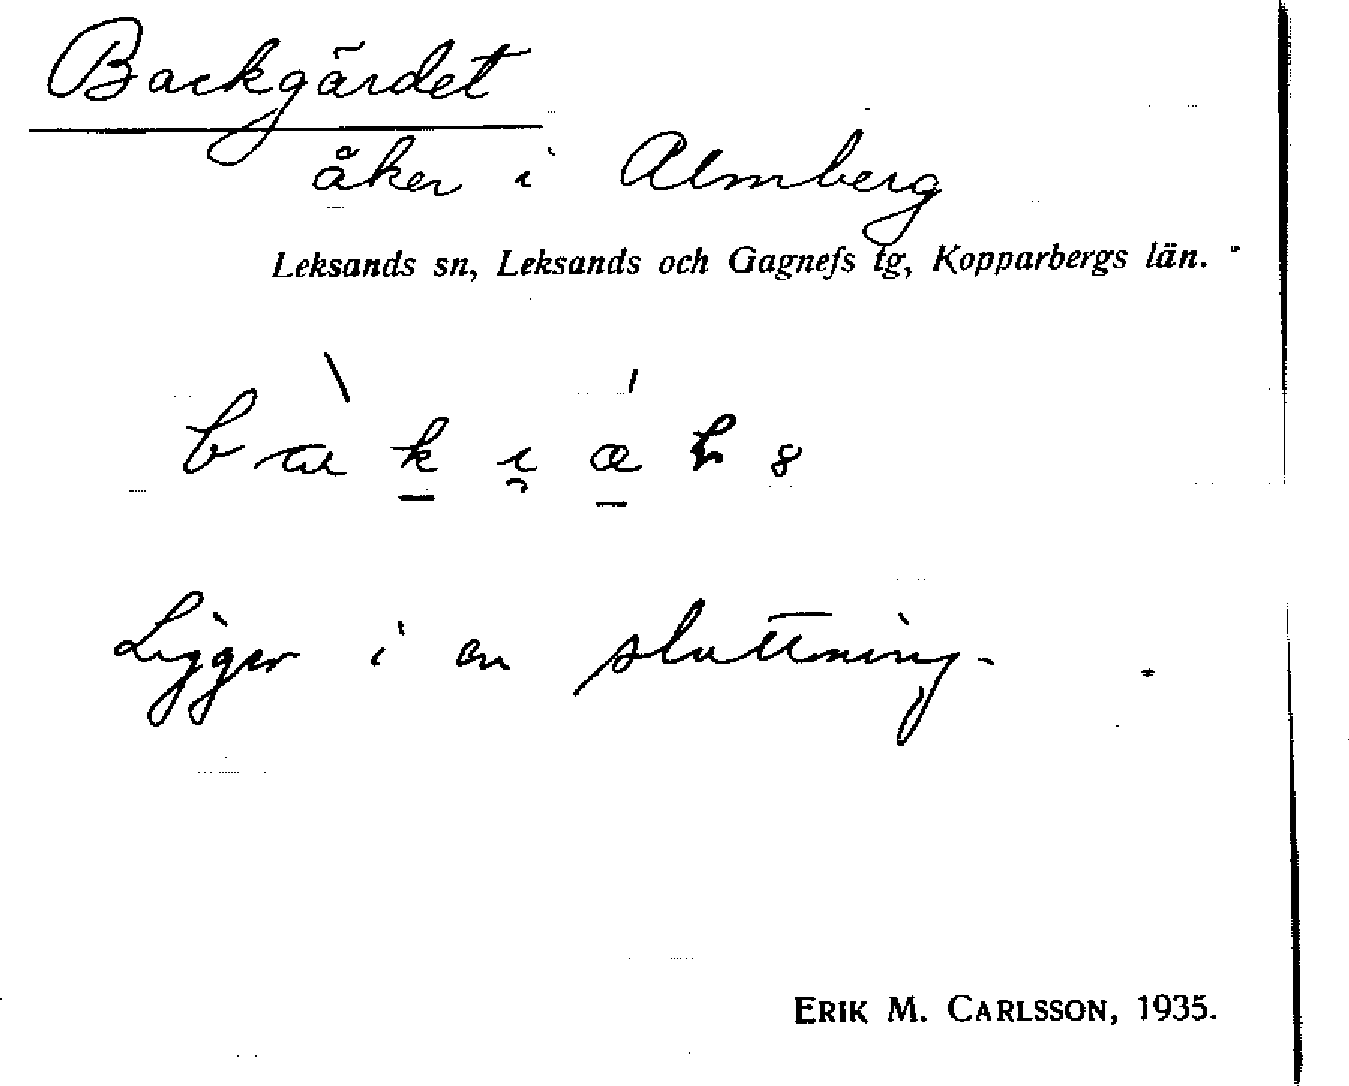 Backgärdet
åker i Almberg
Leksands sn, Leksands och Gagnefs tg, Kopparbergs län.
Ligger i en sluttning.
ERIK M. CARLSSON, 1935.